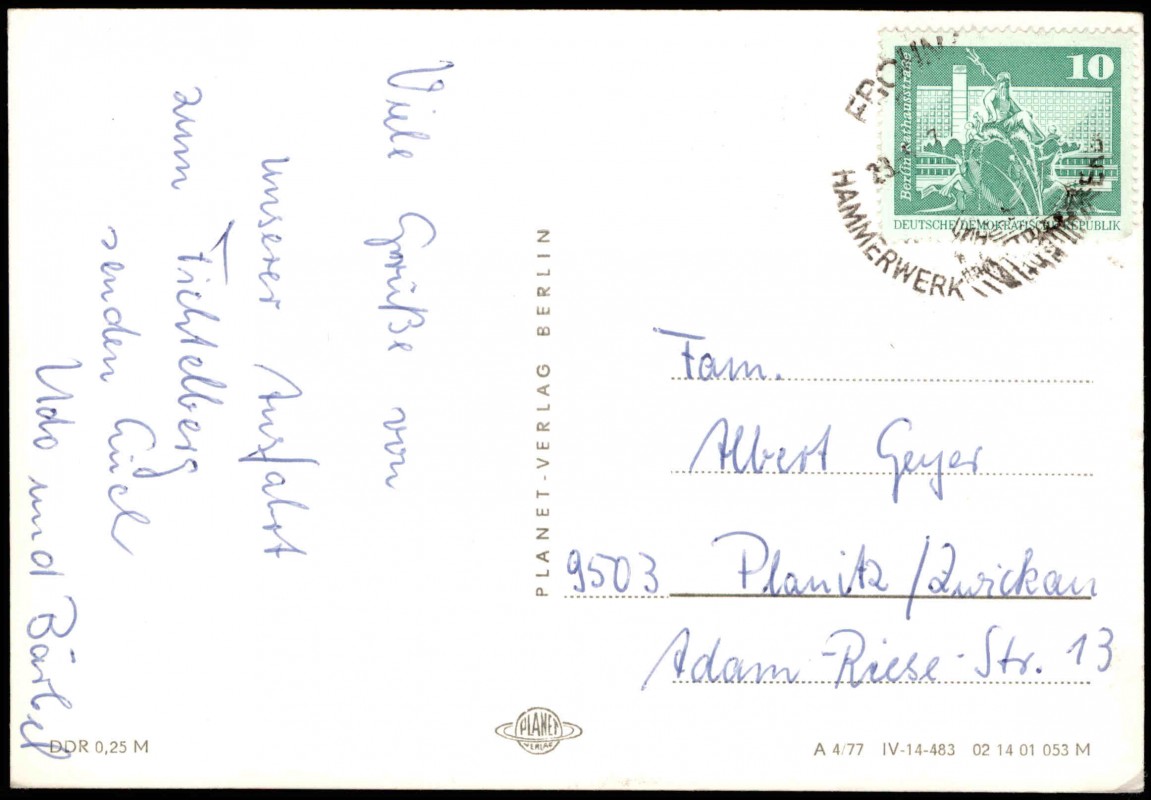 Viele Grüße von
unserer Ausfahrt
zum Fichtelberg
senden Euch
Udo und Bärbel
DDR 0,25 M
PLANET-VERLAG BERLIN
PLANET
VERLAG
10
Berlin, Rathausstraße
DEUTSCHE DEMOKRATISCHE REPUBLIK
HAMMERWERK
Fam.
Albert Geyer
9503 Planitz/Zwickau
Adam-Riese-Str. 13
A 4/77 IV-14-483 02 14 01 053 M